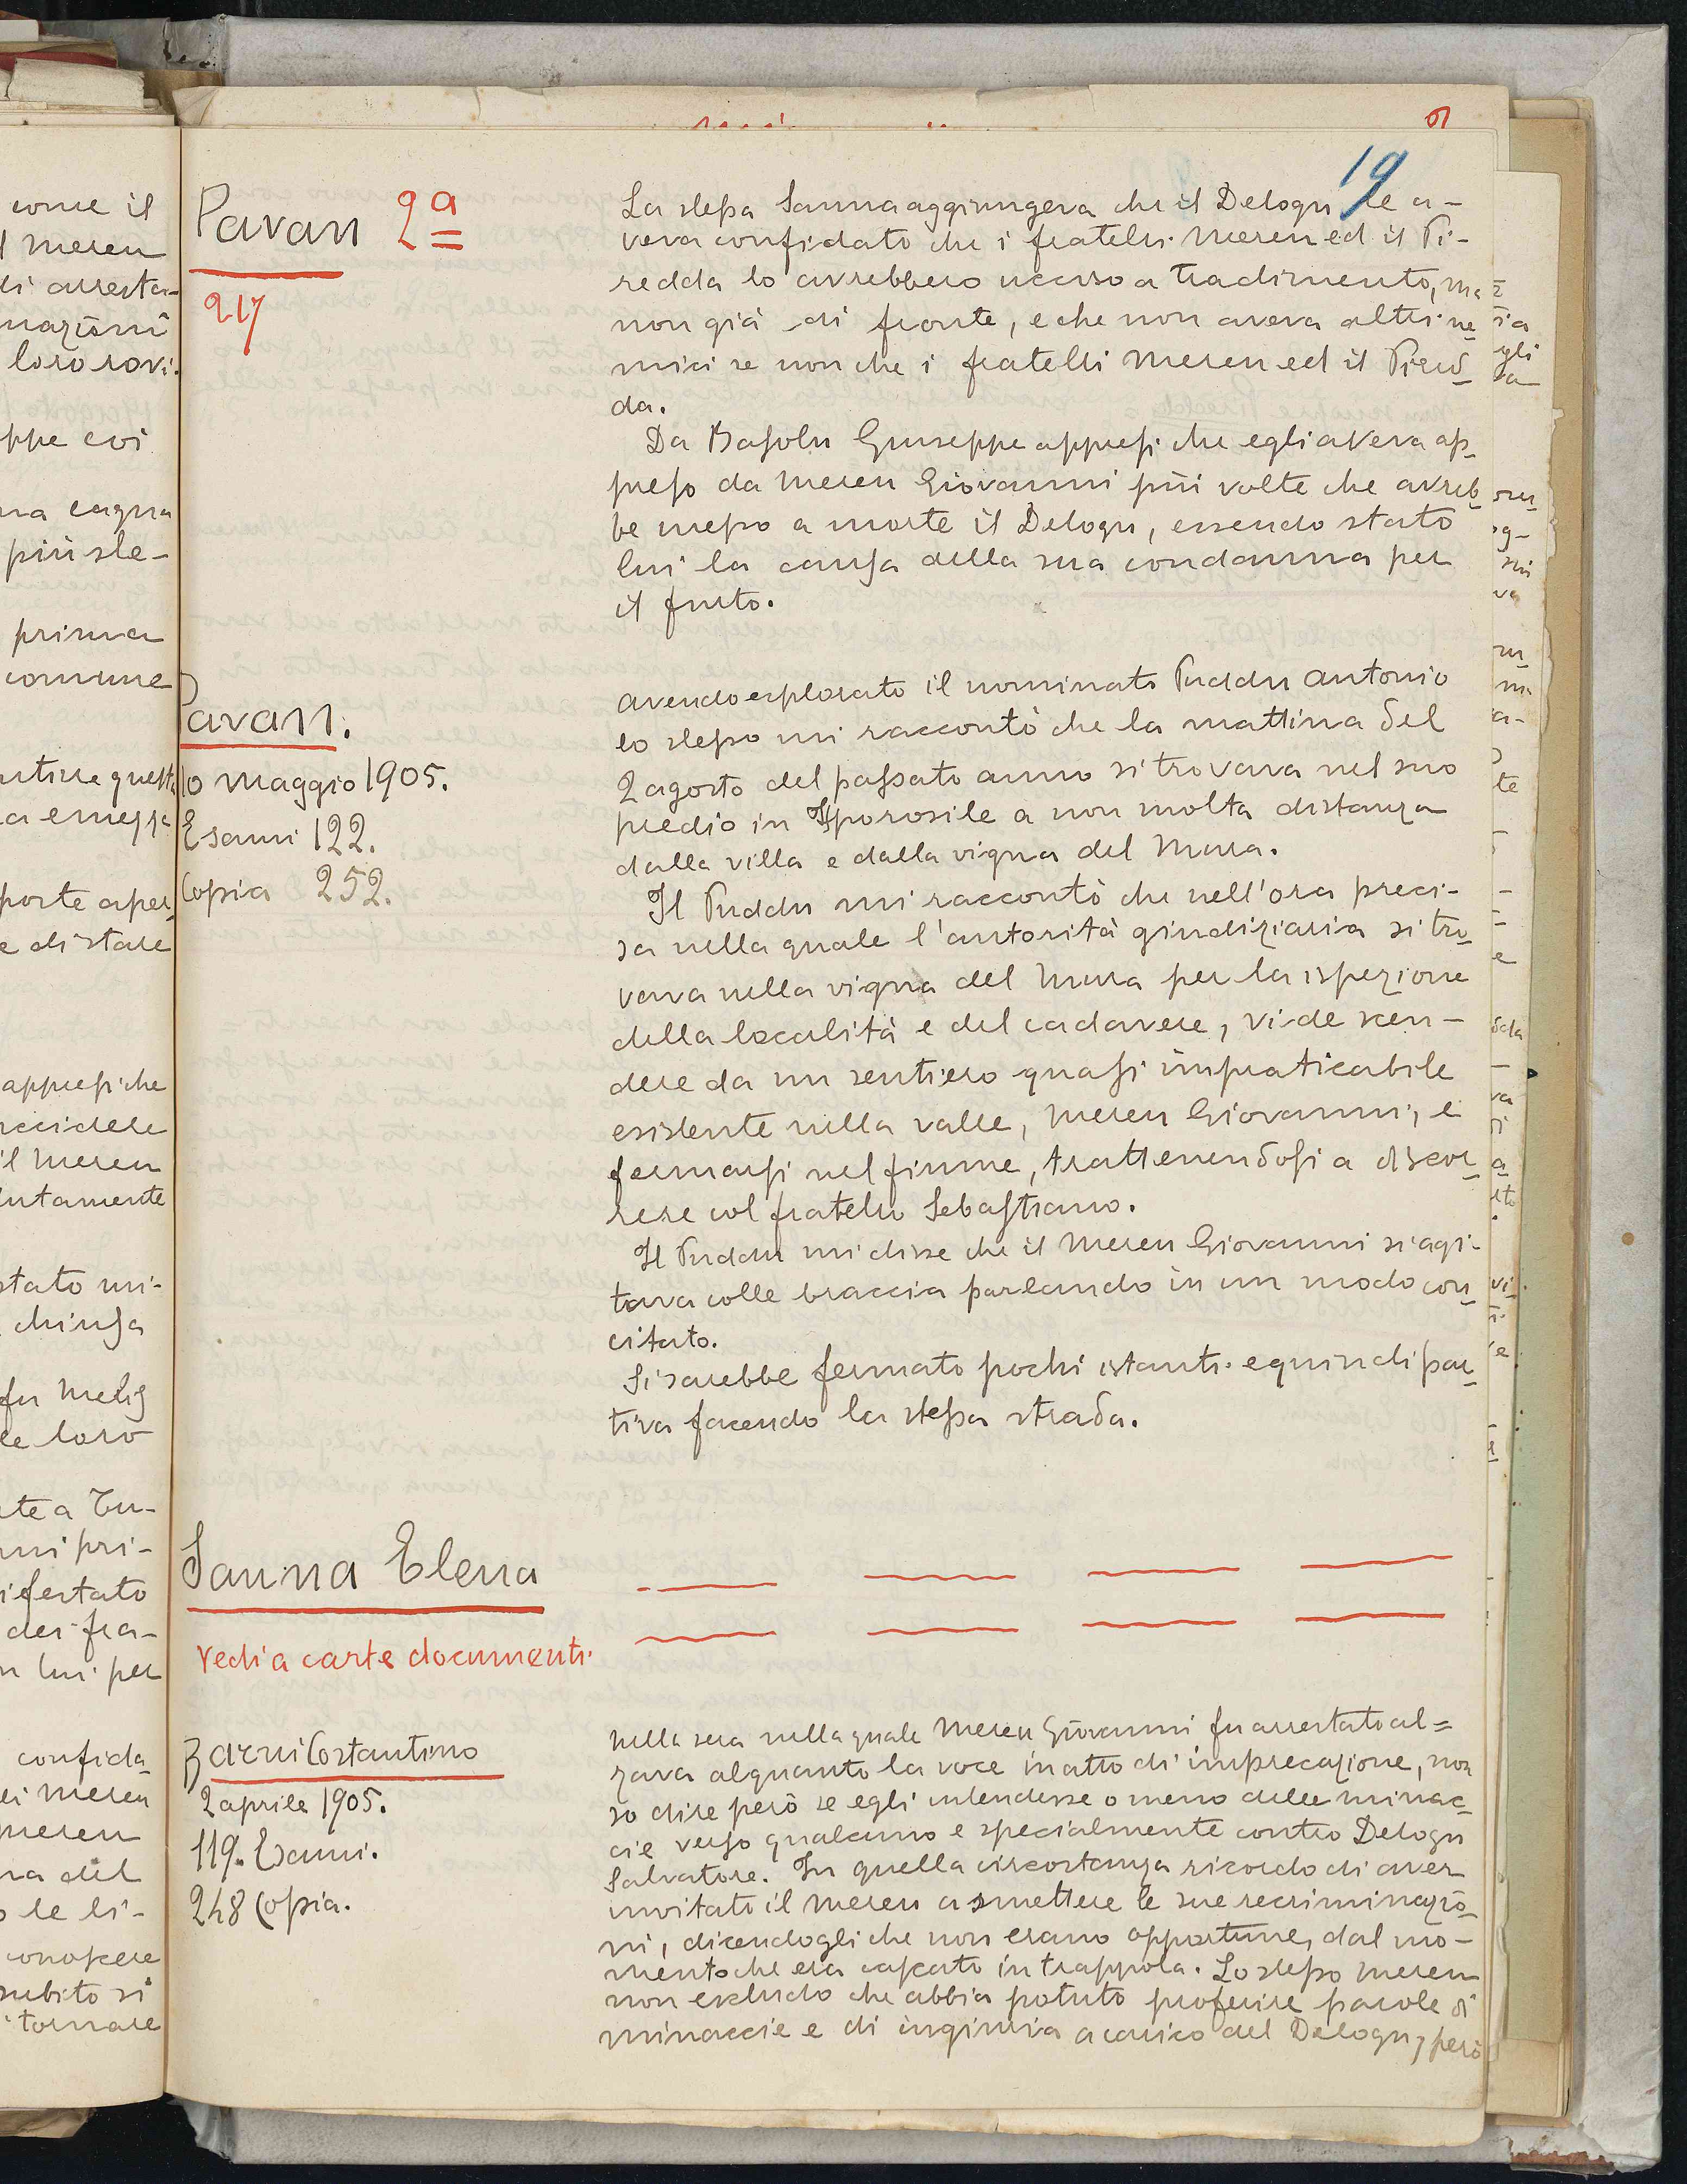 19
Pavan 2ª
217
La stessa Sanna aggiungeva che il Delogu le a-
veva confidato che i fratelli Mereu ed il Pi-
redda lo avrebbero ucciso a tradimento, ma
non già di fronte, e che non aveva altri ne
mici se non che i fratelli Mereu ed il Pired-
da.
Da Basolu Giuseppe appresi che egli aveva ap-
preso da Mereu Giovanni più volte che avreb-
be messo a morte il Delogu, essendo stato
lui la causa della sua condanna per
il furto.
Pavan.
10 maggio 1905.
Esami 122.
Copia 252.
Avendo esplorato il nominato Puddu Antonio
lo stesso mi raccontò che la mattina del
2 agosto del passato anno si trovava nel suo
predio in Isporosile a non molta distanza
dalla villa e dalla vigna del Mura.
Il Puddu mi raccontò che nell'ora preci-
sa nella quale l'autorità giudiziaria si tro-
vava nella vigna del Mura per la ispezione
della località e del cadavere, vide scen-
dere da un sentiero quasi impraticabile
esistente nella valle, Mereu Giovanni, e
fermarsi nel fiume, trattenendosi a discor-
rere col fratello Sebastiano.
Il Puddu mi disse che il Mereu Giovanni si agi-
tava colle braccia parlando in un modo con-
citato.
Si sarebbe fermato pochi istanti e quindi par-
tiva facendo la stessa strada.
Sanna Elena
Vedi a carte documenti.
Zarui Costantino
2 aprile 1905.
119. Esami.
248 Copia.
Nella sera nella quale Mereu Giovanni fu arrestato al=
zava alquanto la voce in atto di imprecazione, non
so dire però se egli intendesse o meno delle minac-
cie verso qualcuno e specialmente contro Delogu
Salvatore. In quella circostanza ricordo di aver
invitato il Mereu a smettere le sue recriminazio-
ni, dicendogli che non erano opportune, dal mo-
mento che era cascato in trappola. Lo stesso Mereu
non escludo che abbia potuto proferire parole di
minaccie e di ingiuria a carico del Delogu, però